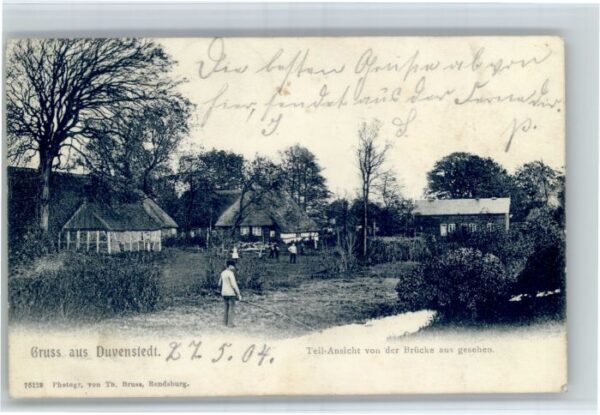 Die besten Grüße ab von
hier, sendet aus der Ferne dir.
J. S. P.
Gruss aus Duvenstedt. 27.5.04.
Teil-Ansicht von der Brücke aus gesehen.
76129 Photogr. von Th. Bruss, Rendsburg.